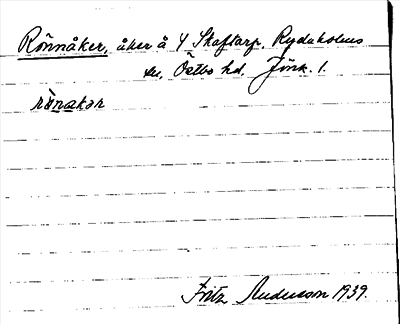 Rönnåker, åker å Y Skaftarp, Rydaholms
sn, Östbo hd, Jönk. l.
rönakər
Fritz Andersson 1939.